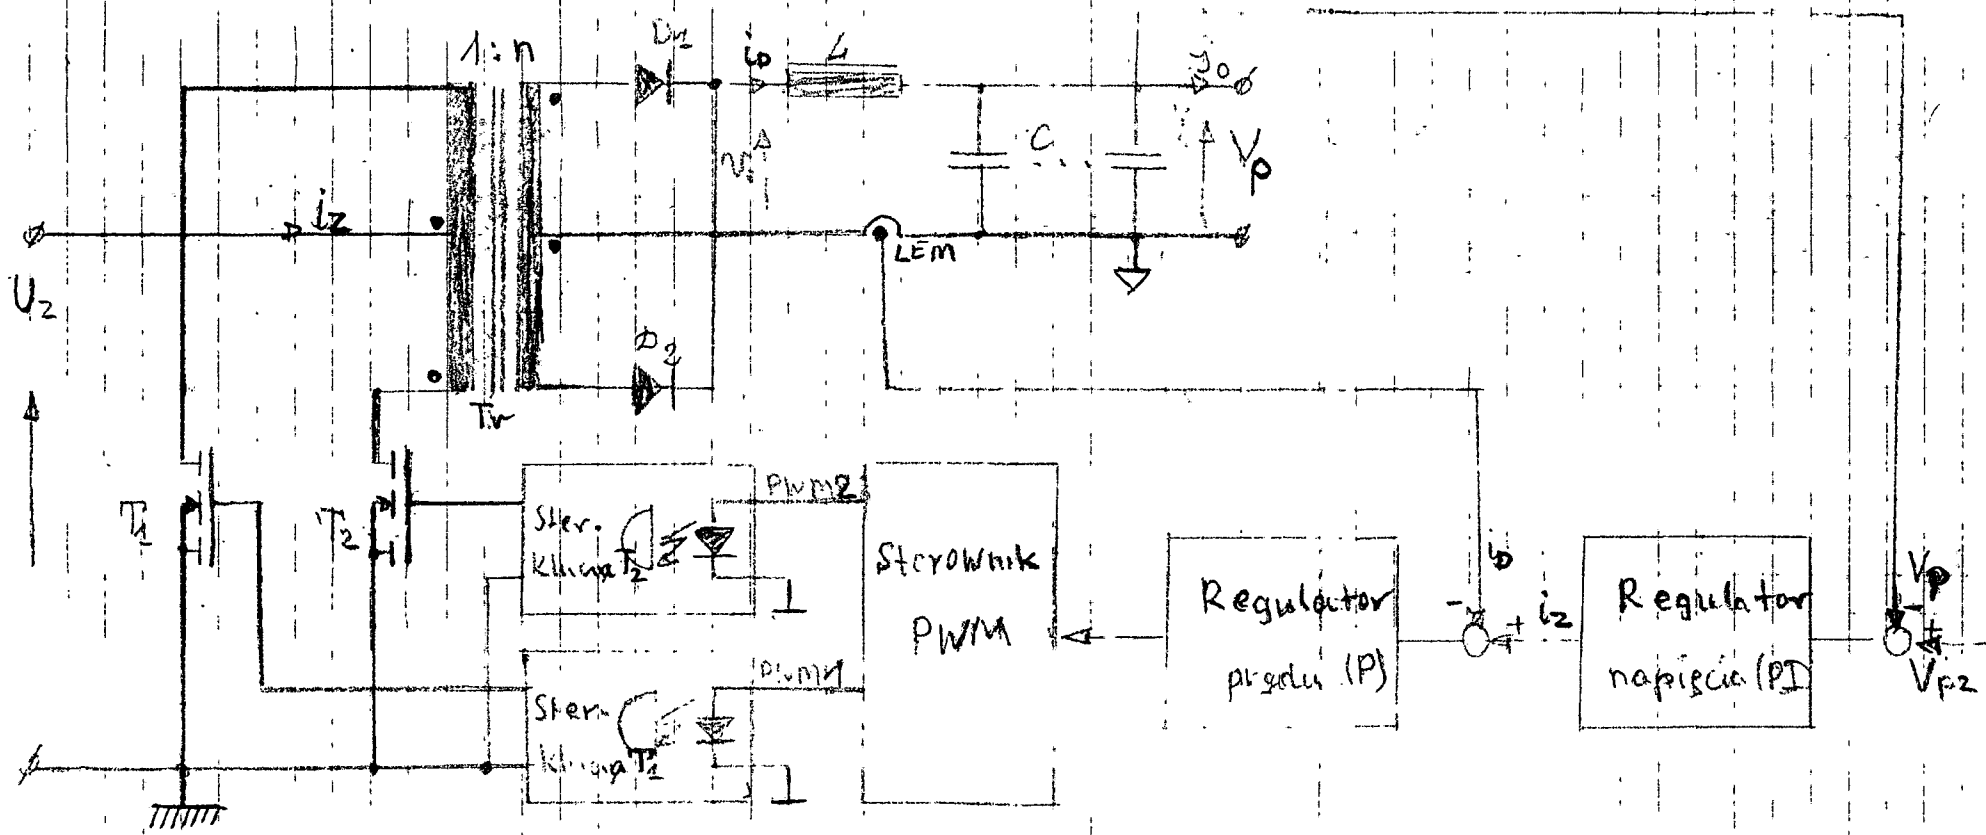 1:n
D1
iD
L
Io
C
...
Vp
iz
LEM
Uz
D2
Tr
T1
T2
Ster.
klucza T2
PWM2
Sterownik
PWM
Regulator
prądu (P)
iD
-
+
iz
Regulator
napięcia (PI)
Vp
-
+
Vpz
PWM1
Ster.
klucza T1